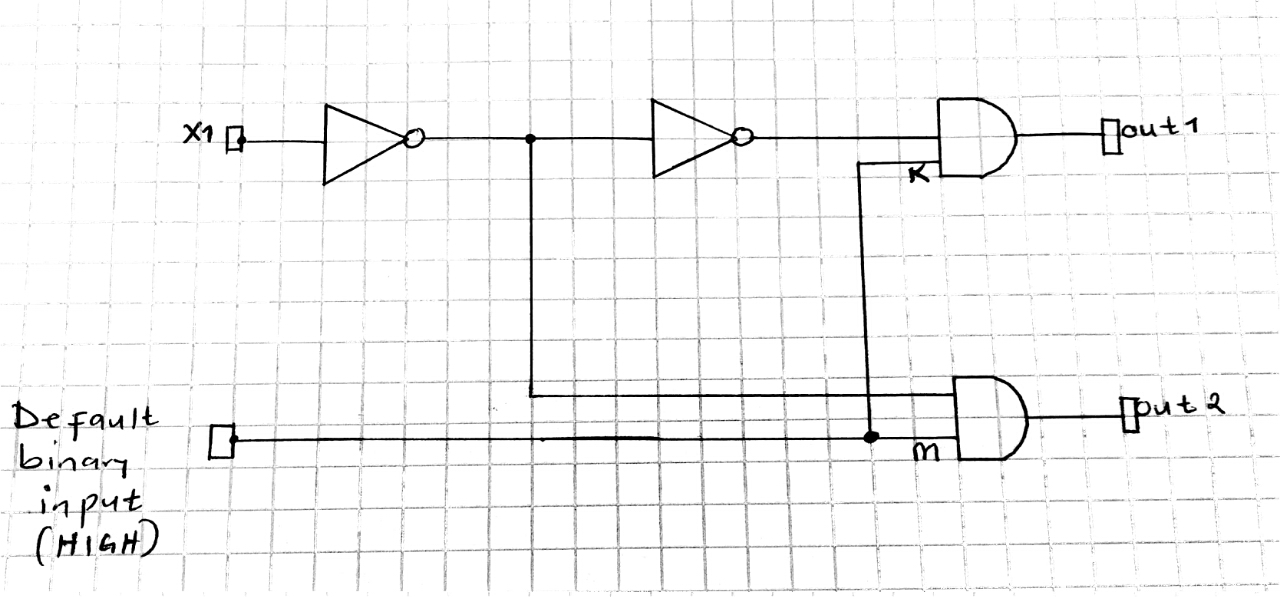 X1
out1
K
Default
binary
input
(HIGH)
out 2
m